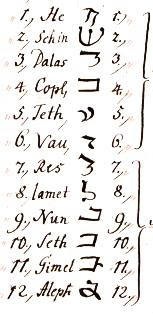 1., He 1.,
2., Schin ש 2.,
3, Dalas 3.,
4, Copf, כ 4.
5, Teth, 5.,
6, Vau, 6.
7, Res 7.,
8. lamet 8.,
9, Nun 9.,
10, Seth 10,
11, Gimel 11.,
12, Aleph 12.,